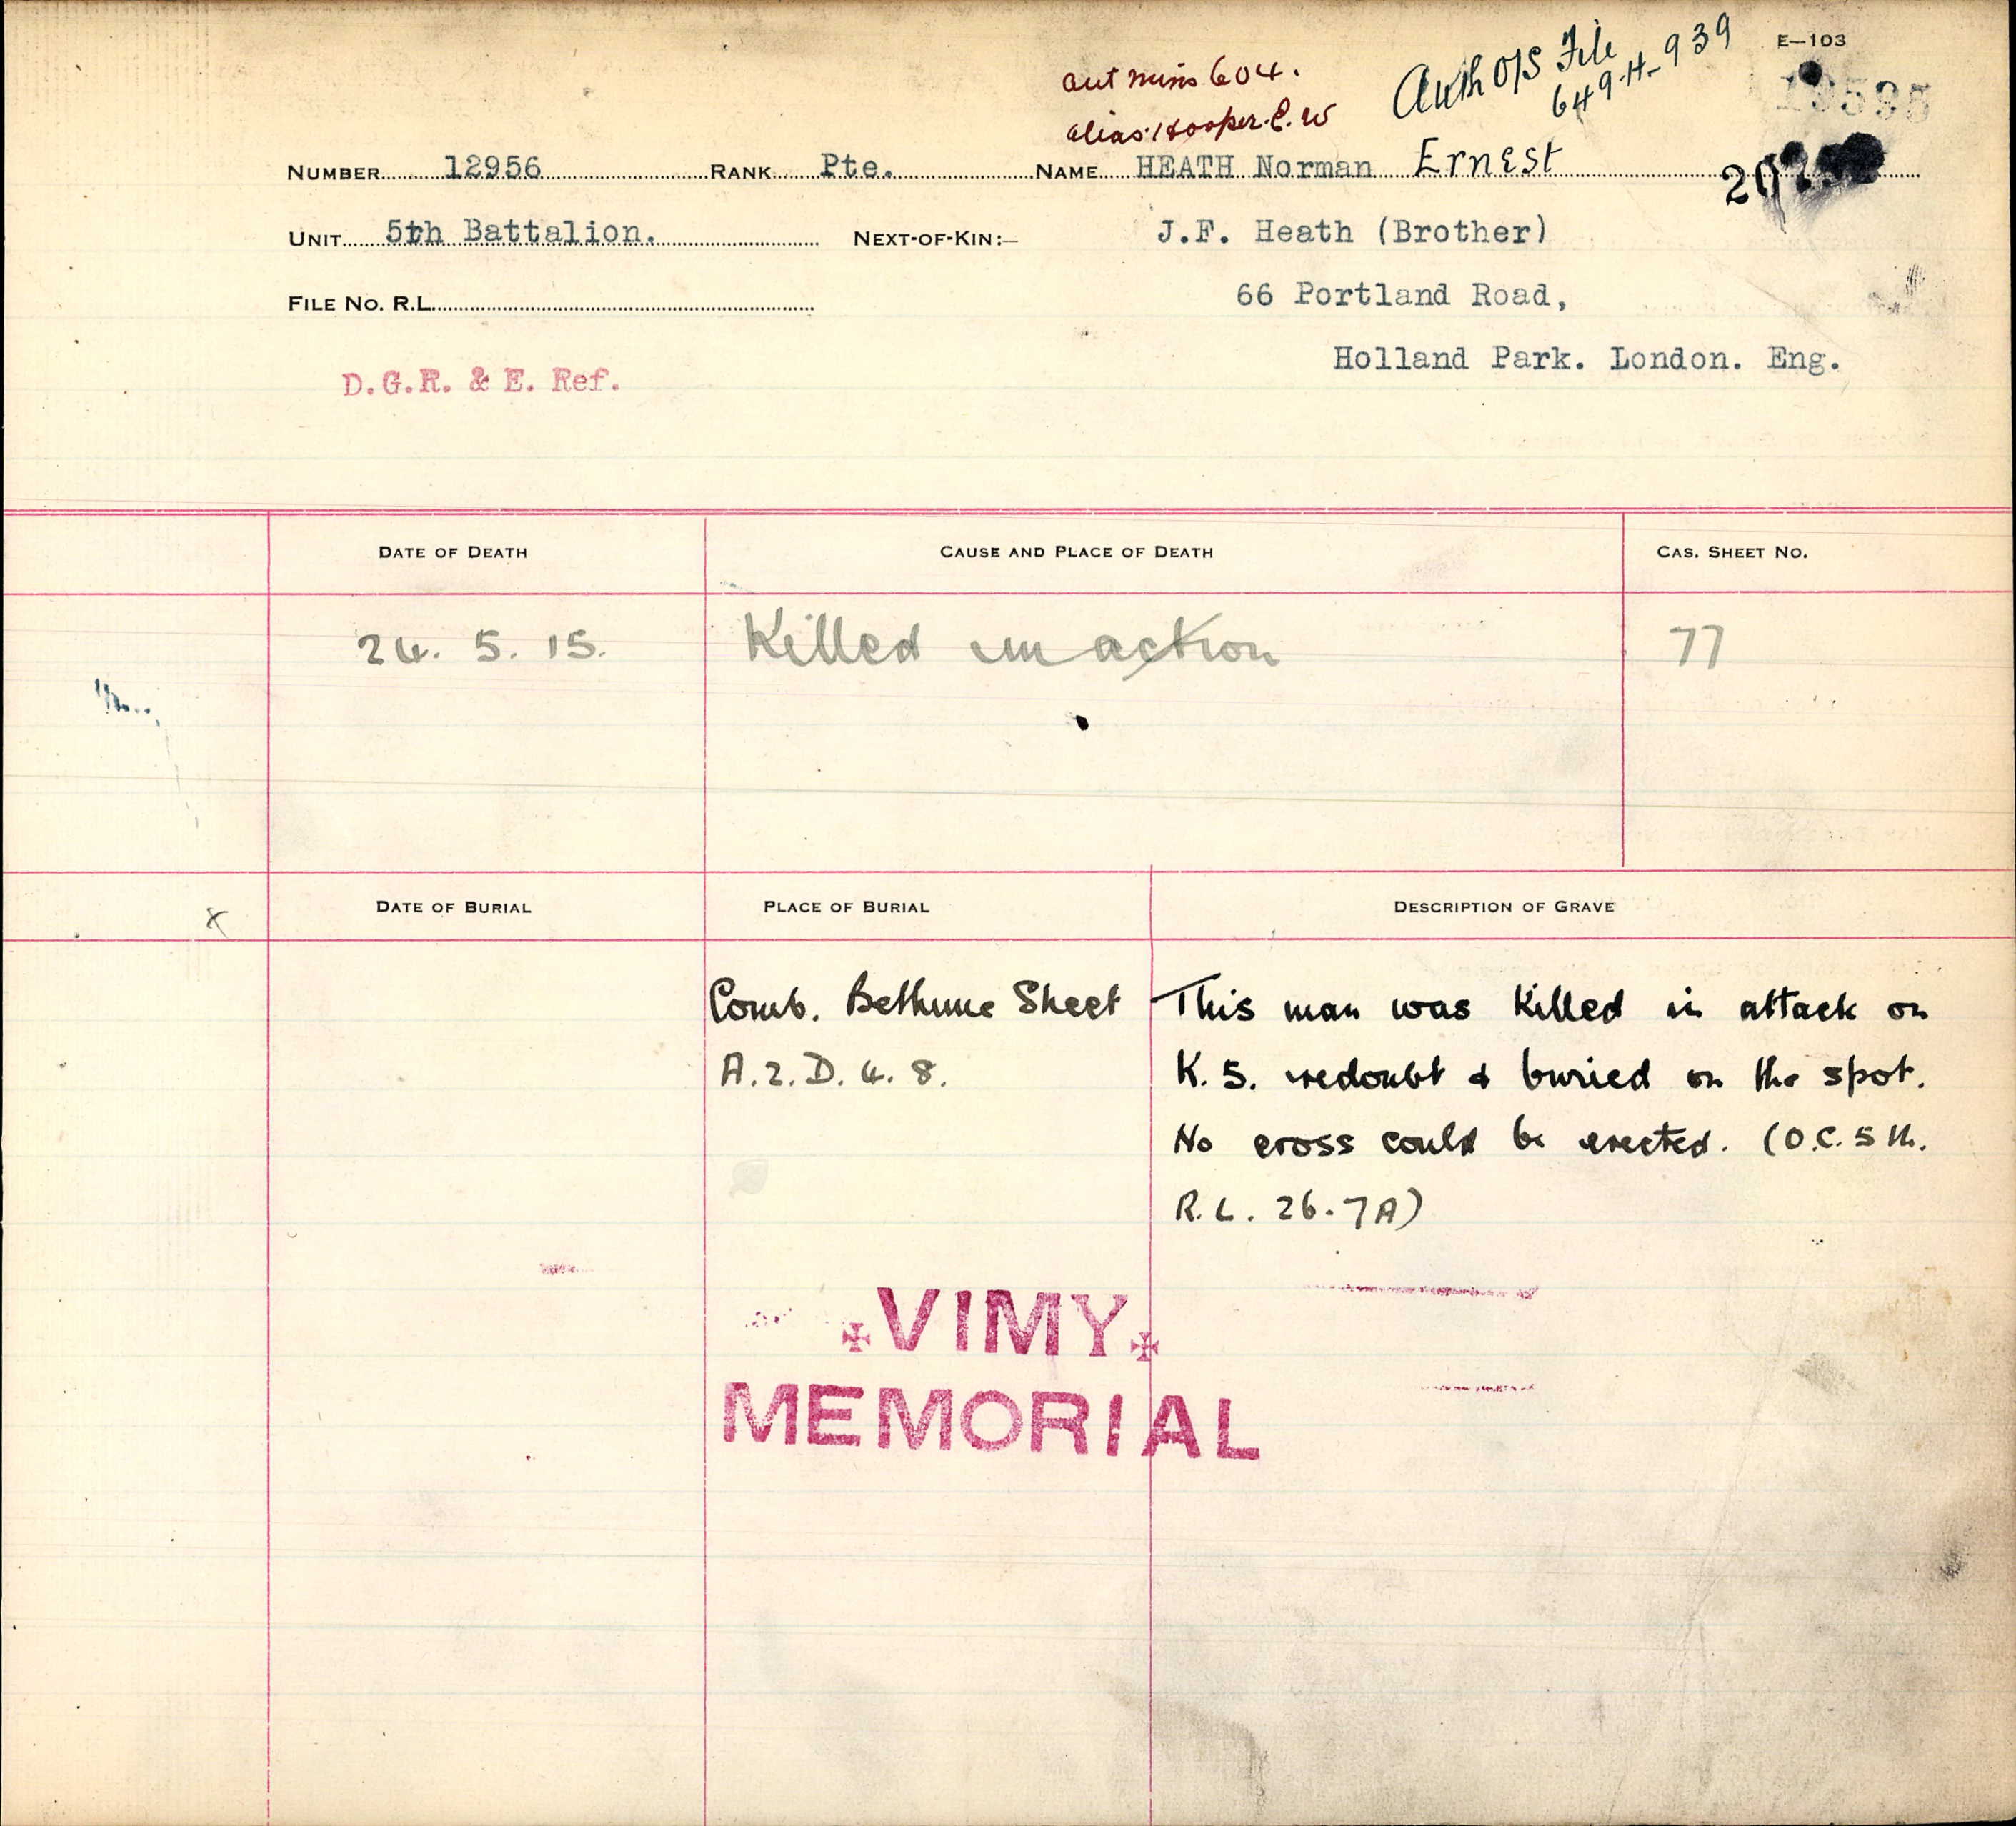 E—103
Aut mins 604.
Auth O/S File
649-H-939
alias: Hooper. E. W
NUMBER 12956 RANK Pte. NAME HEATH Norman Ernest
UNIT 5th Battalion. NEXT-OF-KIN:— J.F. Heath (Brother)
FILE NO. R.L. 66 Portland Road,
Holland Park. London. Eng.
D.G.R. & E. Ref.
DATE OF DEATH CAUSE AND PLACE OF DEATH CAS. SHEET NO.
24. 5. 15. Killed in action 77
DATE OF BURIAL PLACE OF BURIAL DESCRIPTION OF GRAVE
x
Comb. Bethune Sheet This man was killed in attack on
A.2.D.4.8. K.5. redoubt & buried on the spot.
No cross could be erected. (O.C. 5th.
R.L. 26.7A)
VIMY
MEMORIAL